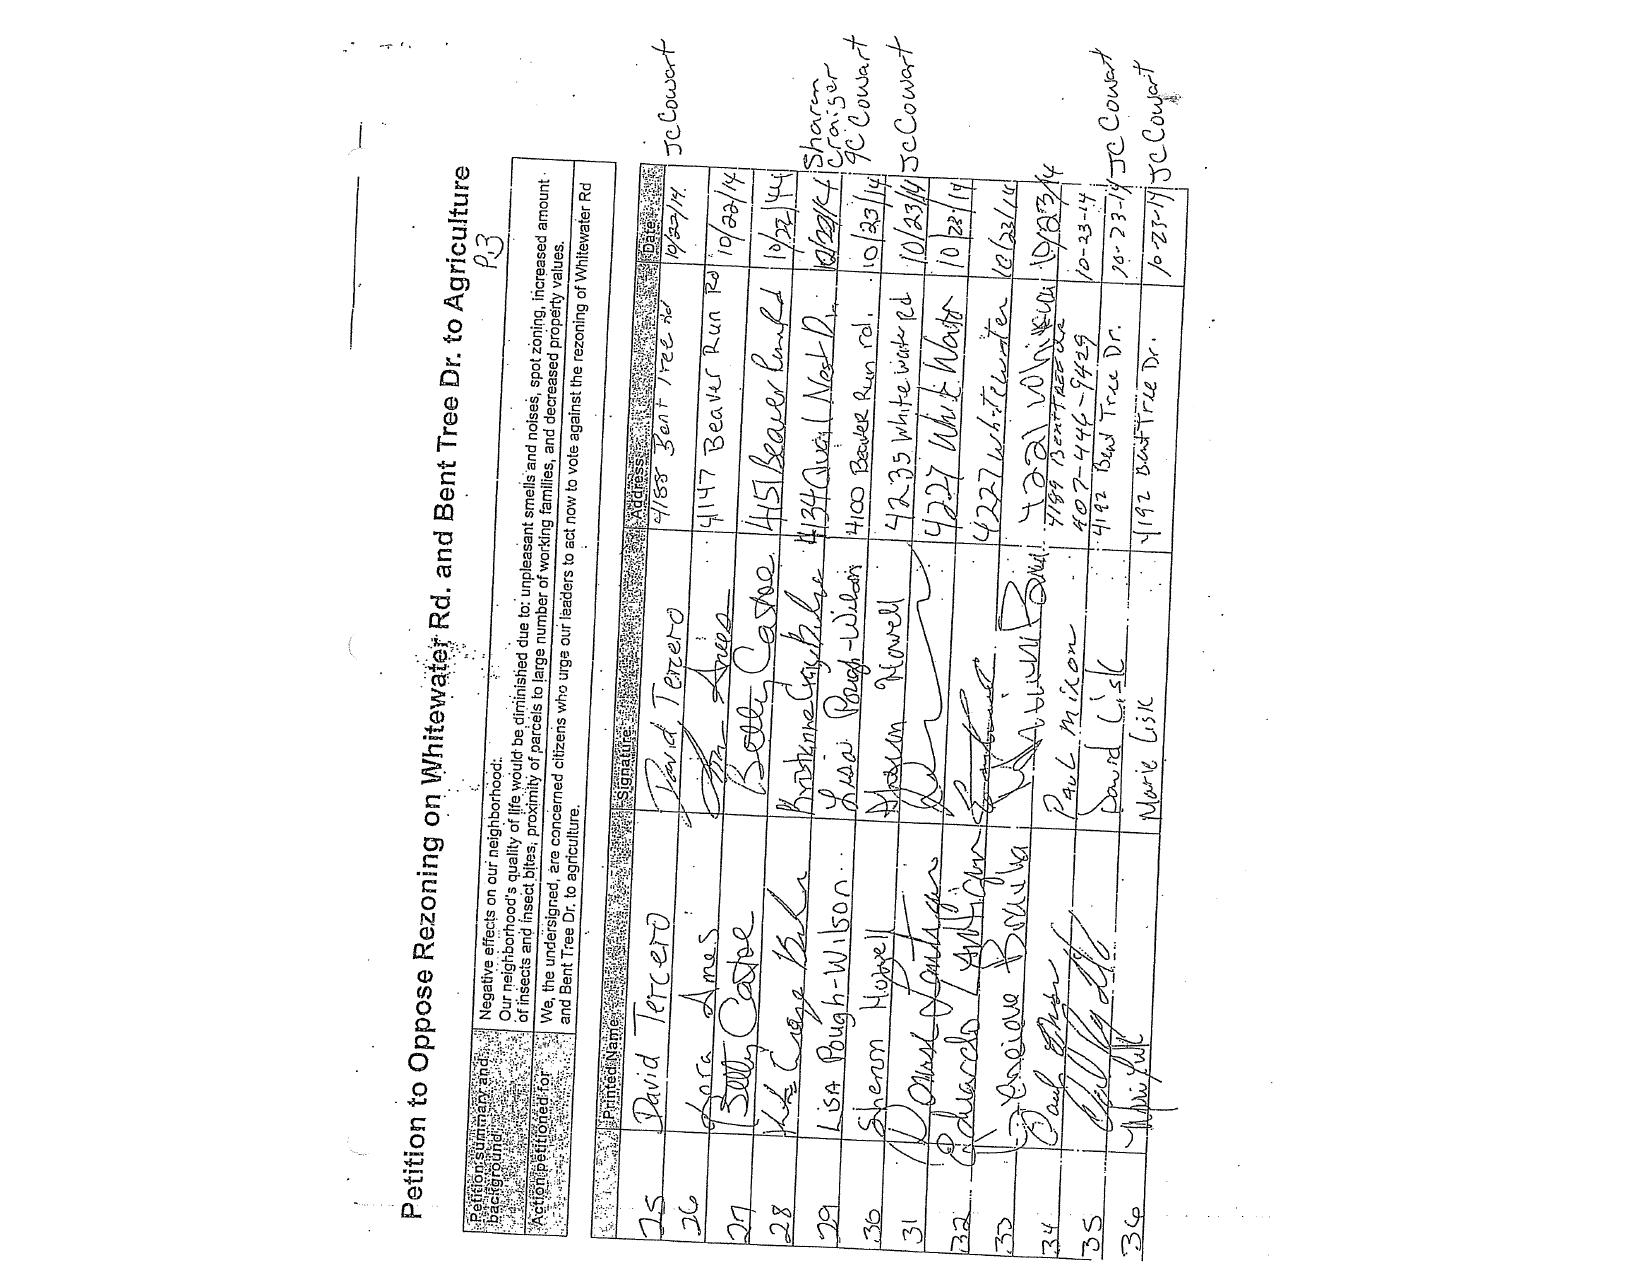 Petition to Oppose Rezoning on Whitewater Rd. and Bent Tree Dr. to Agriculture
P.3
Petition summary and background
Negative effects on our neighborhood:
Our neighborhood's quality of life would be diminished due to: unpleasant smells and noises, spot zoning, increased amount
of insects and insect bites, proximity of parcels to large number of working families, and decreased property values.
Action petitioned for
We, the undersigned, are concerned citizens who urge our leaders to act now to vote against the rezoning of Whitewater Rd
and Bent Tree Dr. to agriculture.
Printed Name Signature Address Date
25 David Tercero David Tercero 4188 Bent Tree Rd 10/22/14 JC Cowart
26 Ames Ames 4147 Beaver Run Rd 10/22/14
27 Betty Catoe Betty Catoe 4151 Beaver Run Rd 10/22/14
28 4134 Quail Nest Dr. 10/22/14 Sharon Craiser
29 Lisa Pough-Wilson Lisa Pough-Wilson 4100 Beaver Run rd. 10/23/14 JC Cowart
30 Sharon Howell Howell 4235 Whitewater rd 10/23/14 JC Cowart
31 4227 Whit Water 10/23/14
32 Eduardo 4227 Whitewater 10/23/14
33 10/23/14
34 Paul Mixon 4189 Bent Tree Dr 407-446-9429 10-23-14
35 David Lisk 4192 Bent Tree Dr. 10-23-14 JC Cowart
36 Marie Lisk 4192 Bent Tree Dr. 10-23-14 JC Cowart